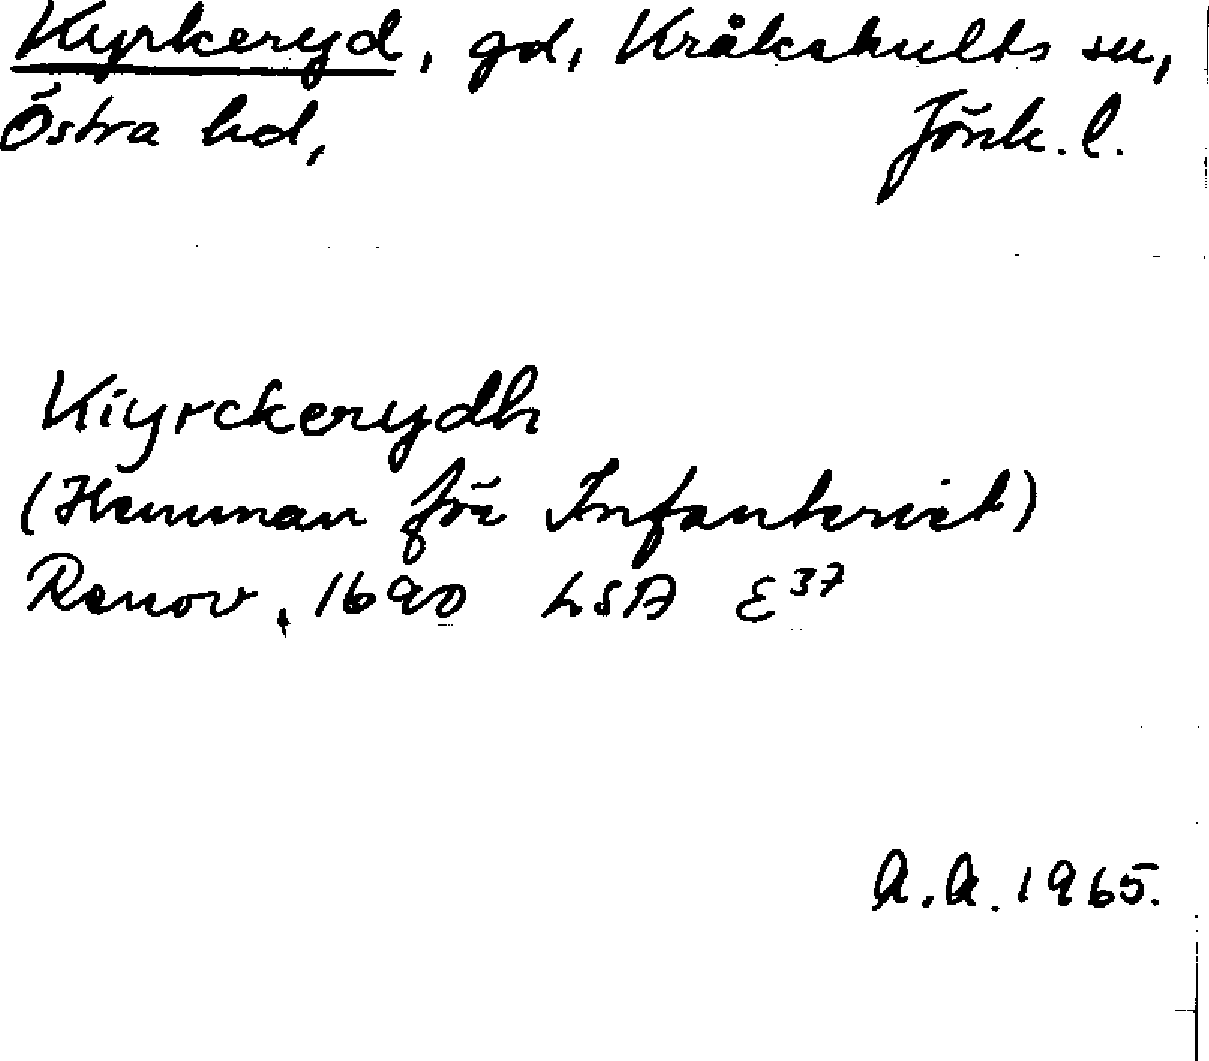 Kyrkeryd, gd, Kråkshults sn,
Östra hd, Jönk. l.
Kiyrckerydh
(Hemman för Infanteriet)
Renov. 1690 LSA E 37
A.A. 1965.